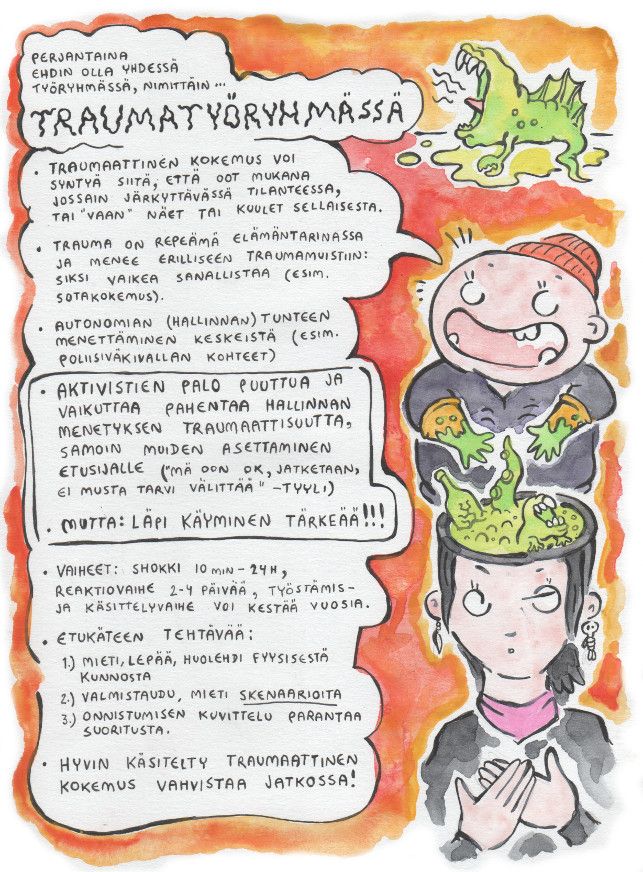 PERJANTAINA
EHDIN OLLA YHDESSÄ
TYÖRYHMÄSSÄ, NIMITTÄIN...
TRAUMATYÖRYHMÄSSÄ
• TRAUMAATTINEN KOKEMUS VOI
SYNTYÄ SIITÄ, ETTÄ OOT MUKANA
JOSSAIN JÄRKYTTÄVÄSSÄ TILANTEESSA,
TAI "VAAN" NÄET TAI KUULET SELLAISESTA.
• TRAUMA ON REPEÄMÄ ELÄMÄNTARINASSA
JA MENEE ERILLISEEN TRAUMAMUISTIIN:
SIKSI VAIKEA SANALLISTAA (ESIM.
SOTAKOKEMUS).
• AUTONOMIAN (HALLINNAN) TUNTEEN
MENETTÄMINEN KESKEISTÄ (ESIM.
POLIISIVÄKIVALLAN KOHTEET)
• AKTIVISTIEN PALO PUUTTUA JA
VAIKUTTAA PAHENTAA HALLINNAN
MENETYKSEN TRAUMAATTISUUTTA,
SAMOIN MUIDEN ASETTAMINEN
ETUSIJALLE ("MÄ OON OK, JATKETAAN,
EI MUSTA TARVI VÄLITTÄÄ" -TYYLI)
• MUTTA: LÄPI KÄYMINEN TÄRKEÄÄ!!!
• VAIHEET: SHOKKI 10 MIN - 24H,
REAKTIOVAIHE 2-4 PÄIVÄÄ, TYÖSTÄMIS-
JA KÄSITTELYVAIHE VOI KESTÄÄ VUOSIA.
• ETUKÄTEEN TEHTÄVÄÄ:
1.) MIETI, LEPÄÄ, HUOLEHDI FYYSISESTÄ
KUNNOSTA
2.) VALMISTAUDU, MIETI SKENAARIOITA
3.) ONNISTUMISEN KUVITTELU PARANTAA
SUORITUSTA.
• HYVIN KÄSITELTY TRAUMAATTINEN
KOKEMUS VAHVISTAA JATKOSSA!